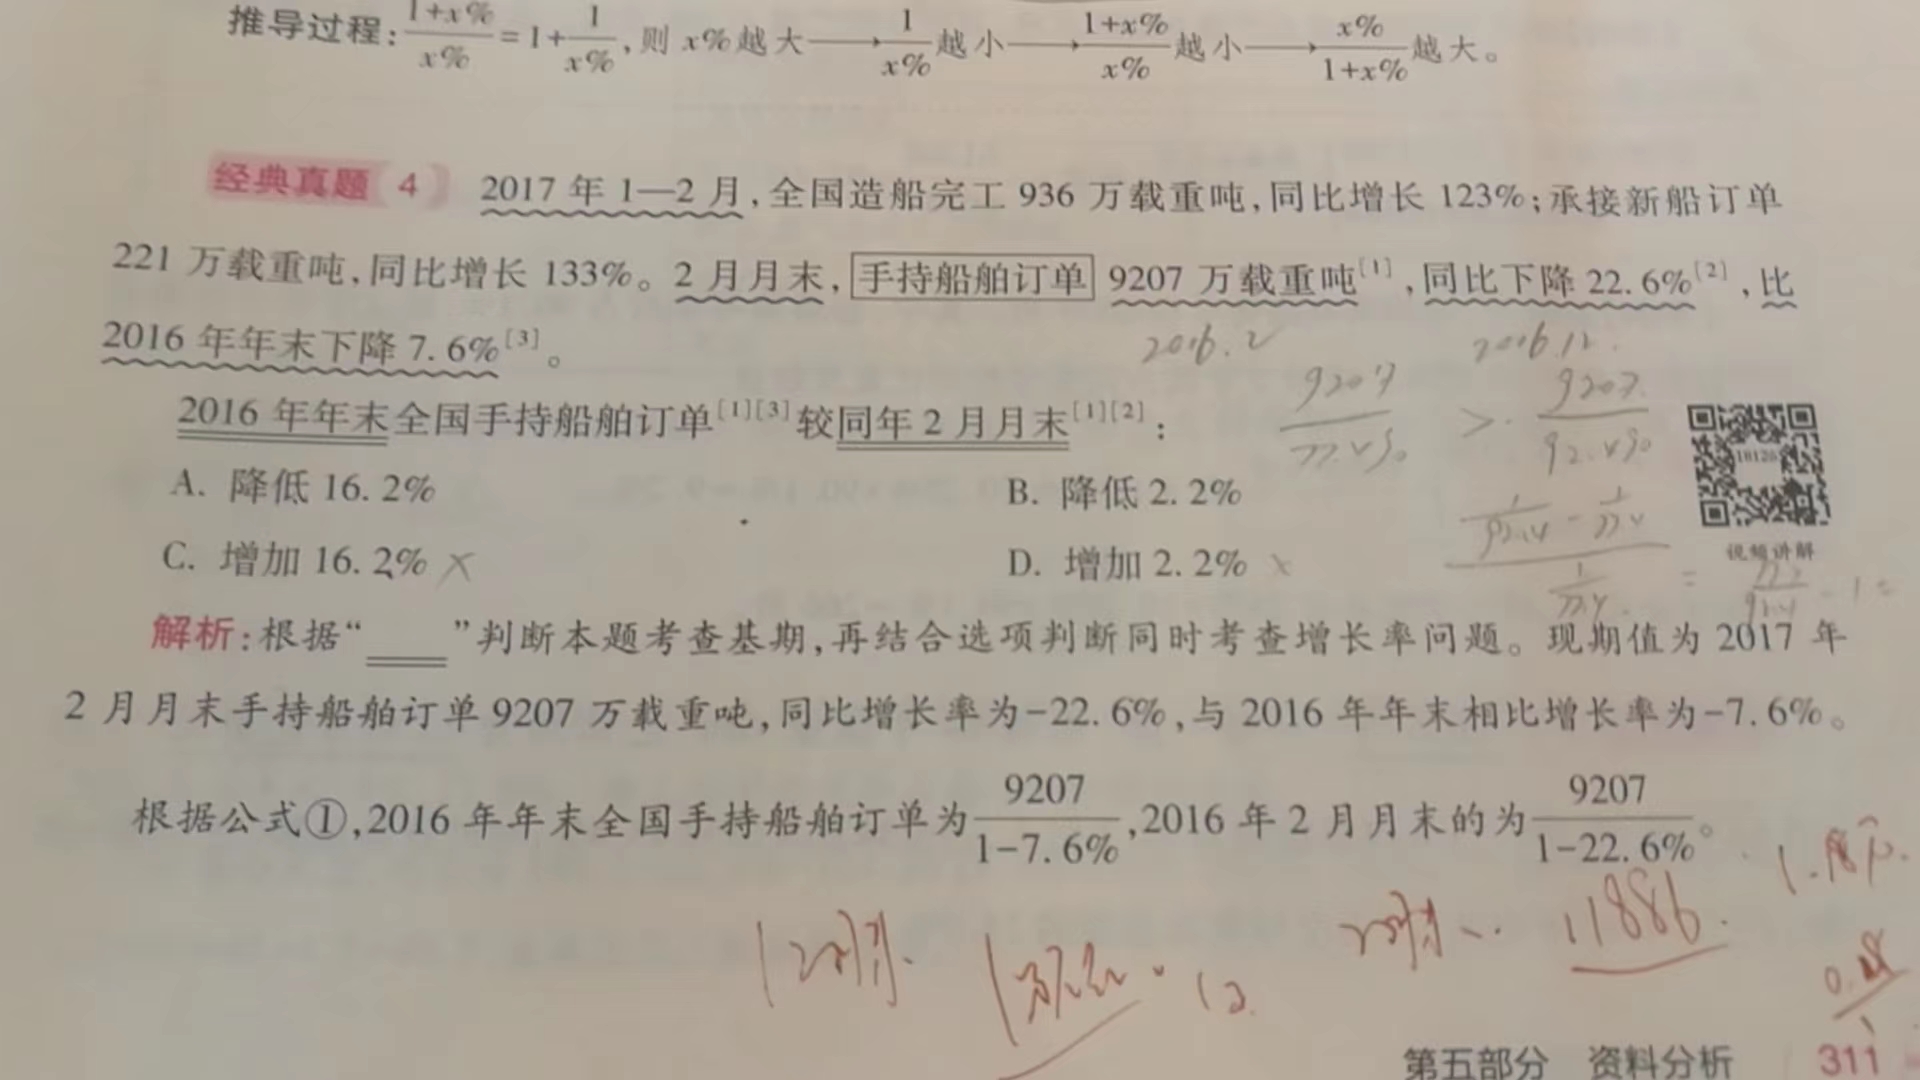 推导过程:(1+x%)/x%=1+1/x%,则 x%越大→1/x%越小→(1+x%)/x%越小→x%/(1+x%)越大。
经典真题 4 2017年1—2月,全国造船完工936万载重吨,同比增长123%;承接新船订单
221万载重吨,同比增长133%。2月月末,手持船舶订单9207万载重吨[1],同比下降22.6%[2],比
2016年年末下降7.6%[3]。
2016.2 2016.12.
9207 > 9207
2016年年末全国手持船舶订单[1][3]较同年2月月末[1][2]:
77.4% 92.4%
A. 降低16.2% B. 降低2.2%
C. 增加16.2% × D. 增加2.2% ×
视频讲解
解析:根据“ ”判断本题考查基期,再结合选项判断同时考查增长率问题。现期值为2017年
2月月末手持船舶订单9207万载重吨,同比增长率为-22.6%,与2016年年末相比增长率为-7.6%。
根据公式①,2016年年末全国手持船舶订单为9207/(1-7.6%),2016年2月月末的为9207/(1-22.6%)。
11886.
第五部分 资料分析 311